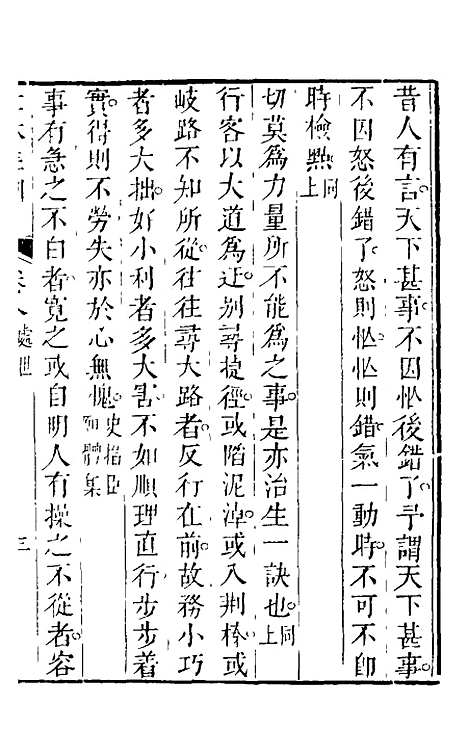 昔人有言天下甚事不因忙後錯了予謂天下甚事
不因怒後錯了怒則忙忙則錯氣一動時不可不卽
時檢點同上
切莫爲力量所不能爲之事是亦治生一訣也同上
行客以大道爲迂别尋捷徑或陷泥淖或入荆榛或
岐路不知所從往往尋大路者反行在前故務小巧
者多大拙好小利者多大害不如順理直行步步着
實得則不勞失亦於心無愧史搢臣願體集
事有急之不白者寬之或自明人有操之不從者容
卷八 處世 三